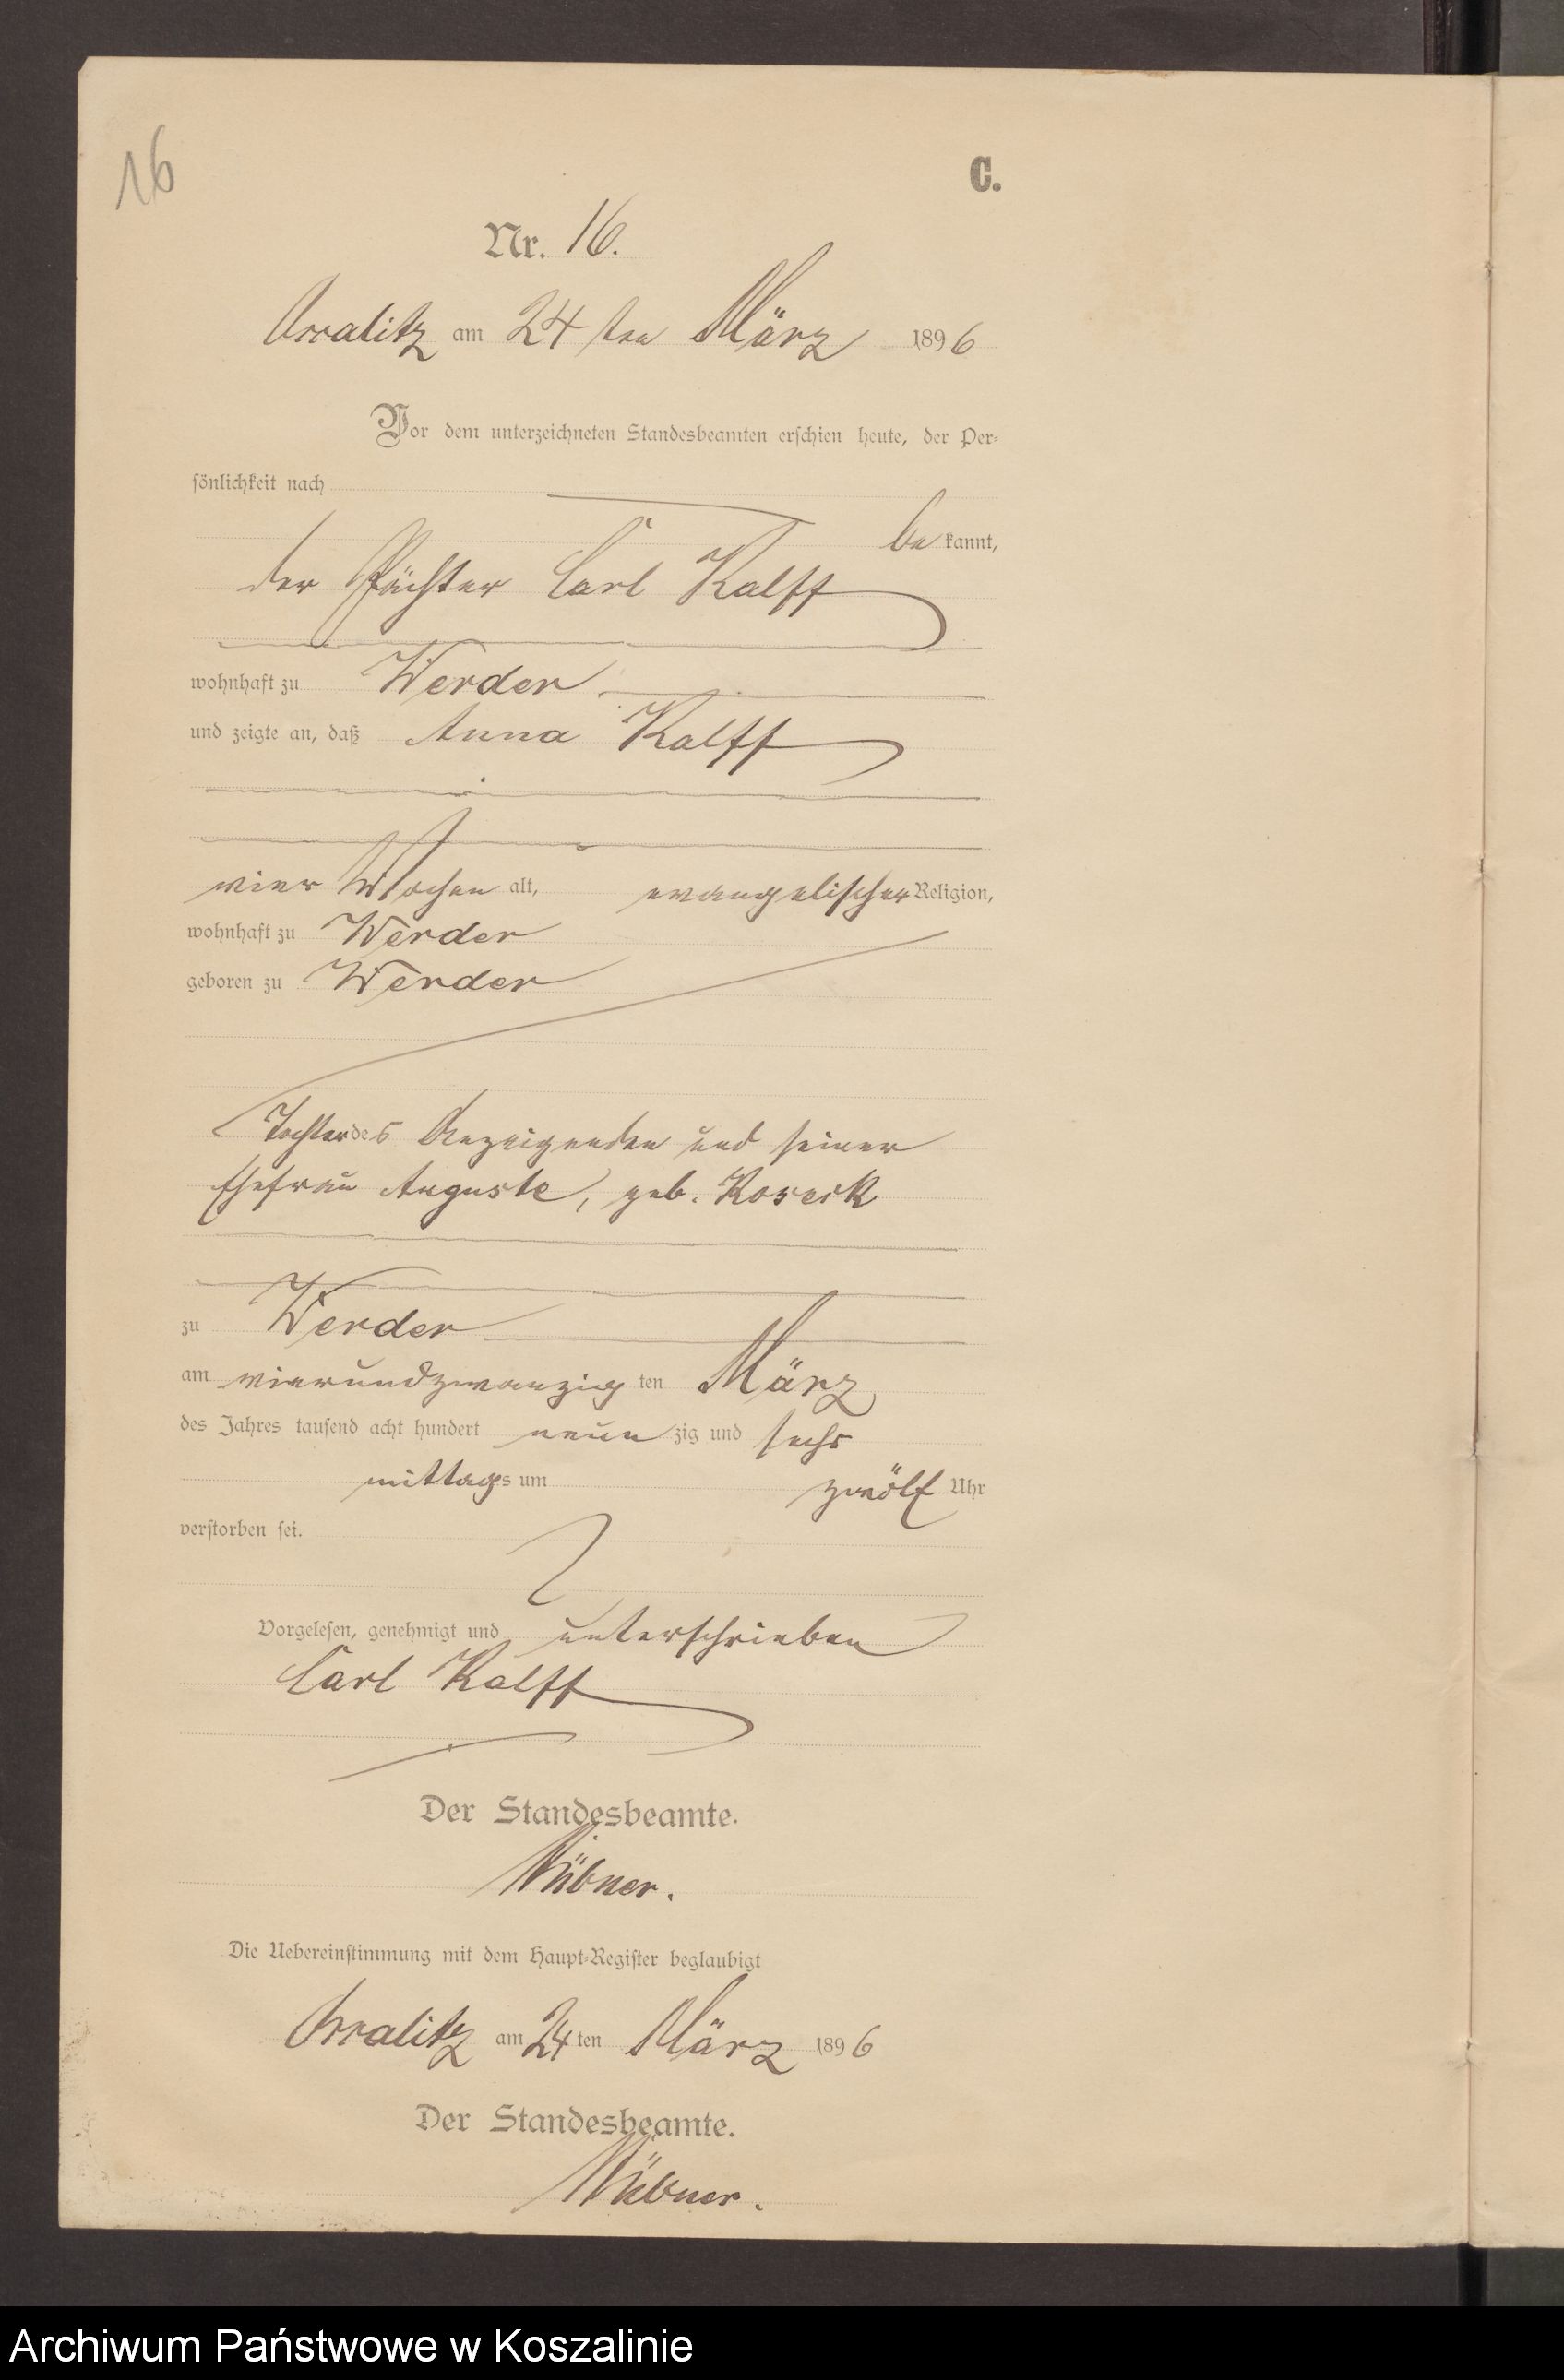 16
C.
Nr. 16.
am 24 ten März 1896
Vor dem unterzeichneten Standesbeamten erschien heute, der Per-
sönlichkeit nach
be kannt,
der Pächter Carl Kalff
wohnhaft zu Werder
und zeigte an, daß Anna Kalff
vier Wochen alt, evangelischer Religion,
wohnhaft zu Werder
geboren zu Werder
Tochter des Anzeigenden und seiner
Ehefrau Auguste, geb.
zu Werder
am vierundzwanzig ten März
des Jahres tausend acht hundert neun zig und sechs
mittags um zwölf Uhr
verstorben sei.
Vorgelesen, genehmigt und unterschrieben
Carl Kalff
Der Standesbeamte.
Die Uebereinstimmung mit dem Haupt-Register beglaubigt
am 24 ten März 1896
Der Standesbeamte.
Archiwum Państwowe w Koszalinie